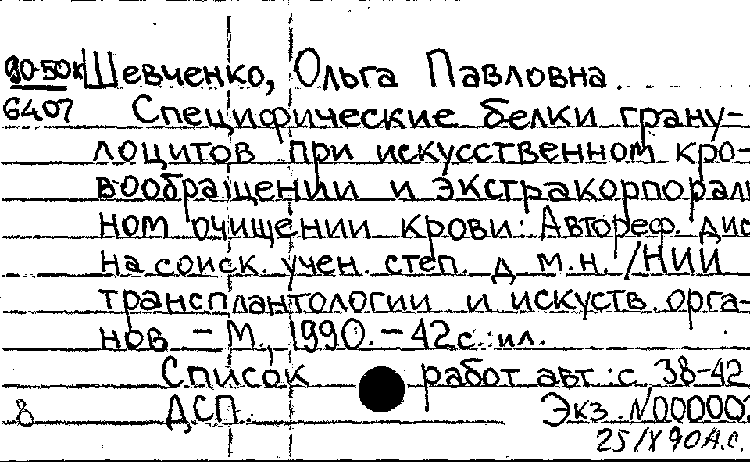 90-50к Шевченко, Ольга Павловна.
6407 Специфические белки грану-
лоцитов при искусственном кро-
вообращении и экстракорпораль
ном очищении крови: Автореф. дис
на соиск. учен. степ. д. м.н. /НИИ
трансплантологии и искуств. орга-
нов - М., 1990. - 42 с.:ил.
Список работ авт.:с. 38-42
8 ДСП. Экз. N000001
25/X 90 А.С.